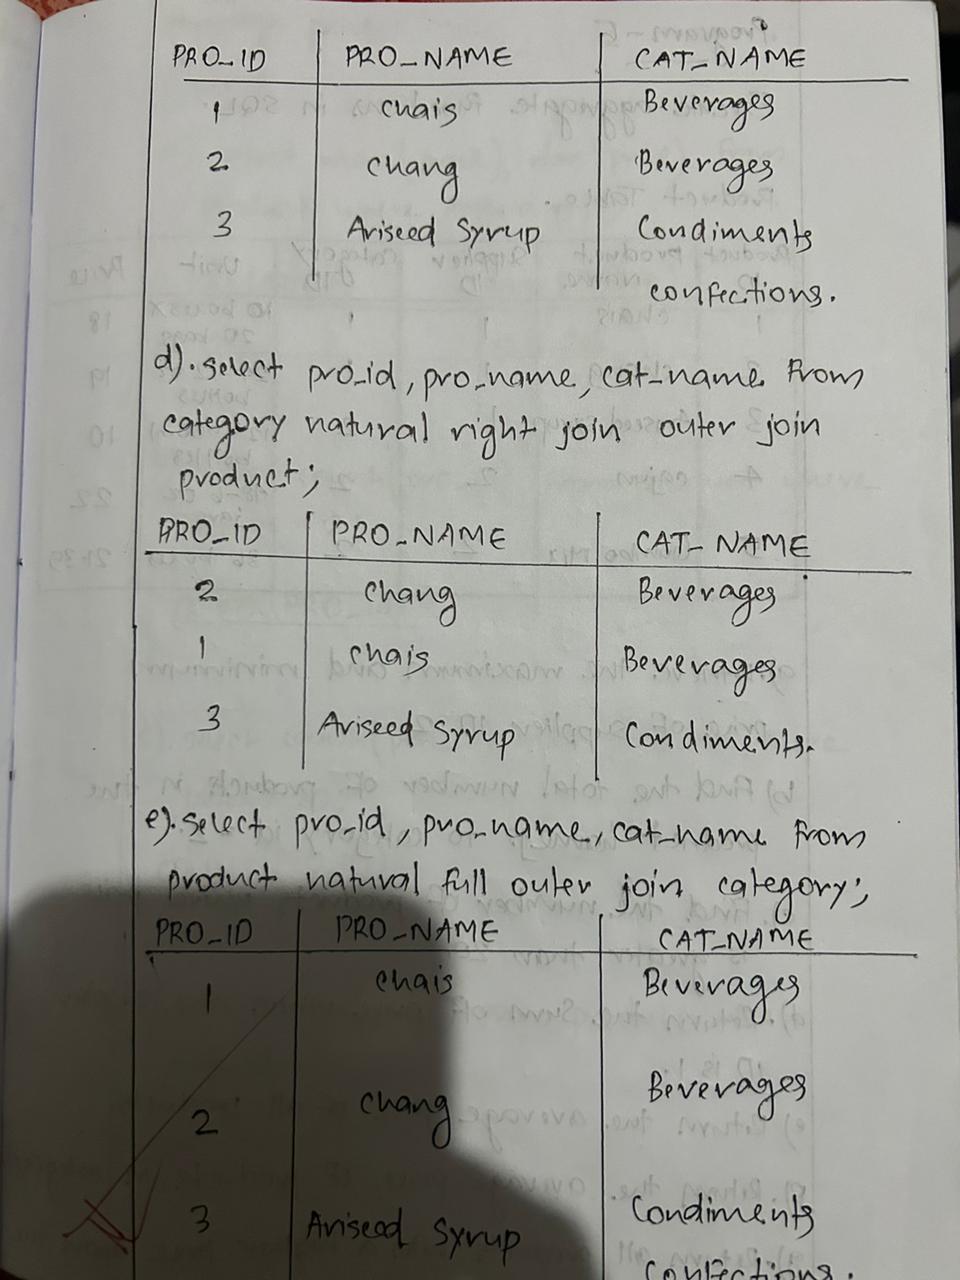 PRO_ID PRO_NAME CAT_NAME
1 chais Beverages
2 chang Beverages
3 Ariseed Syrup Condiments
confections.
d). select pro_id, pro_name, cat_name From
category natural right join outer join
product;
PRO_ID PRO_NAME CAT_NAME
2 chang Beverages
1 chais Beverages
3 Ariseed Syrup Condiments.
e). select pro_id, pro_name, cat_name From
product natural full outer join category;
PRO_ID PRO_NAME CAT_NAME
1 chais Beverages
2 chang Beverages
3 Ariseed Syrup Condiments
Confections.